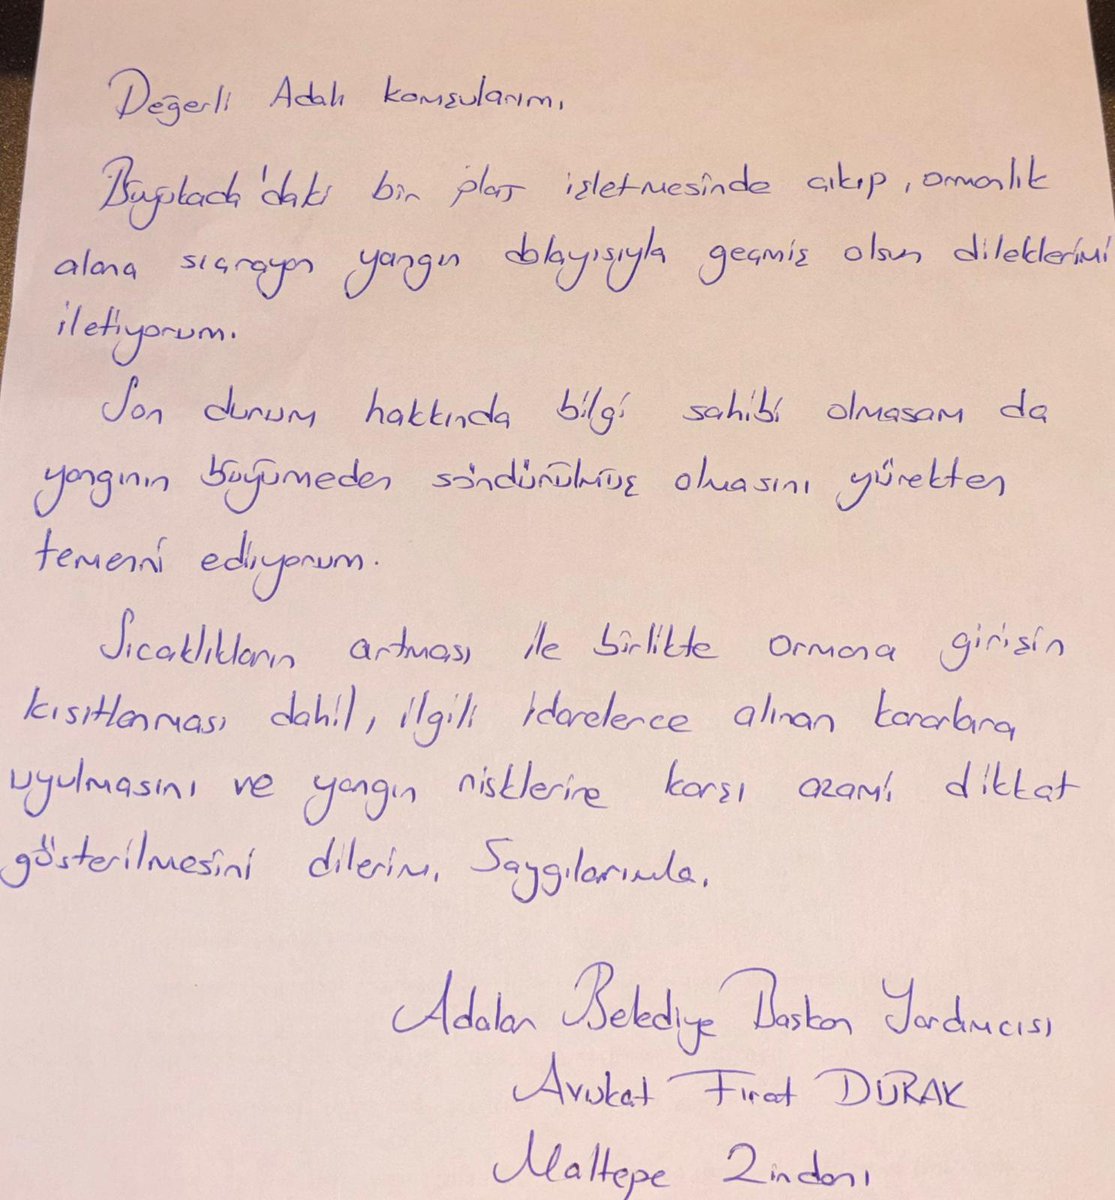 Değerli Adalı komşularım,
Büyükada'daki bir plaj işletmesinde çıkıp, ormanlık
alana sıçrayan yangın dolayısıyla geçmiş olsun dileklerimi
iletiyorum.
Son durum hakkında bilgi sahibi olmasam da
yangının büyümeden söndürülmüş olmasını yürekten
temenni ediyorum.
Sıcaklıkların artması ile birlikte ormana girişin
kısıtlanması dahil, ilgili idarelerce alınan kararlara
uyulmasını ve yangın risklerine karşı azami dikkat
gösterilmesini dilerim. Saygılarımla,
Adalar Belediye Başkan Yardımcısı
Avukat Fırat DURAK
Maltepe Zindanı